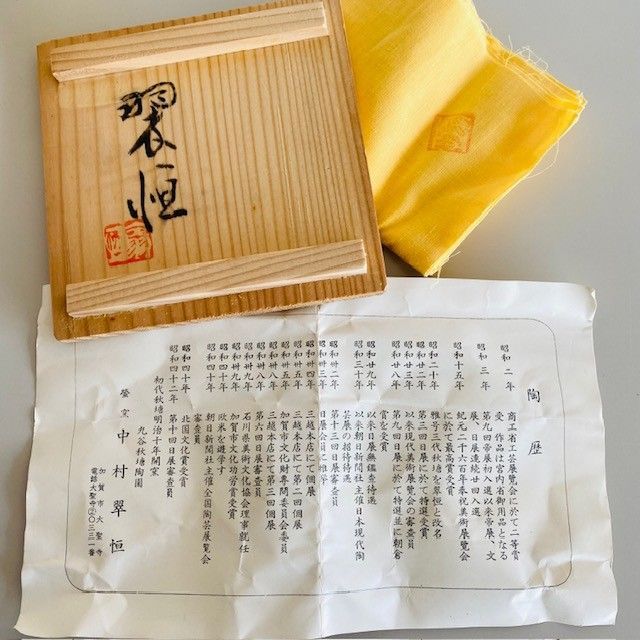 翠恒
陶歴
昭和二年 商工省工芸展覧会に於て二等賞
受、作品は宮内省御用品となる
昭和三年 第九回帝展初入選以来帝展、文
展、日展連続廿四回入選
昭和十五年 紀元二千六百年春祝美術展覧会
に於て最高賞受賞
昭和二十年 雅号三代秋塘を翠恒と改名
昭和廿二年 第三回日展に於て特選受賞
昭和廿三年 以来現代美術展の審査員
昭和廿八年 第九回日展に於て特選並に朝倉
賞を受賞
昭和廿九年 以来日展無鑑査待遇
昭和三十年 以来朝日新聞社主催日本現代陶
芸展の招待待遇
昭和卅二年 第十三回日展審査員
昭和卅三年 日展会員に推挙
昭和卅四年 三越本店にて個展
昭和卅五年 三越本店にて第二回個展
昭和卅五年 加賀市文化財専門委員会委員
昭和卅八年 三越本店にて第三回個展
昭和卅八年 第六回日展審査員
昭和卅九年 石川県美術文化協会理事就任
昭和卅九年 加賀市文化功労賞受賞
昭和四十年 欧米を遊学す
昭和四十年 朝日新聞社主催全国陶芸展覧会
審査員
昭和四十年 北国文化賞受賞
昭和四十二年 第十回日展審査員
初代秋塘明治十年開窯
九谷秋塘陶園
螢窯 中村翠恒
加賀市大聖寺
電話大聖寺②〇三三一番